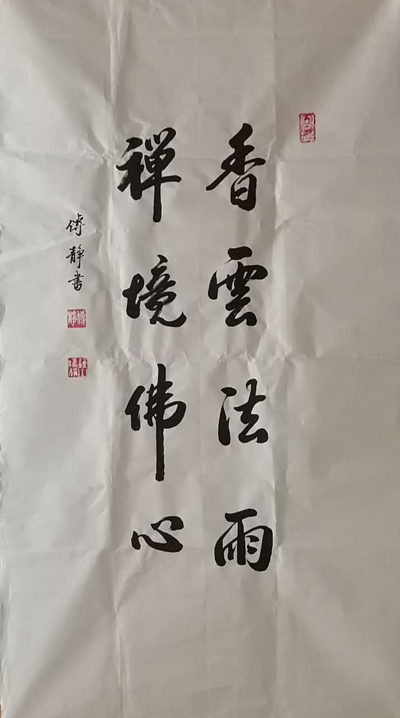 香雲法雨
禪境佛心
傅靜書